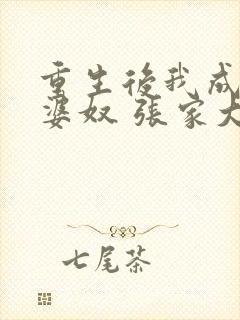 重生後我成
婆奴 张家大
七尾茶